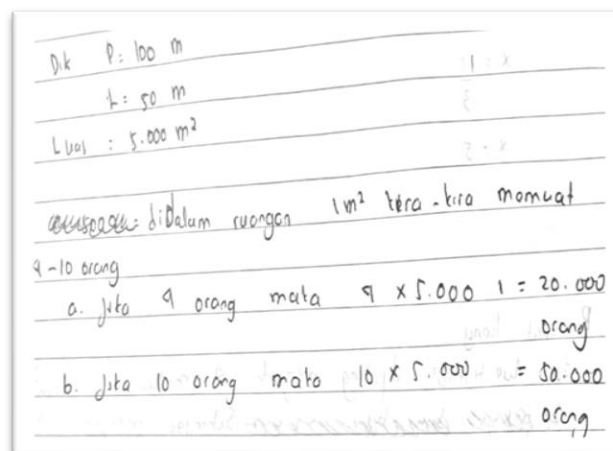 Dik P = 100 m
L = 50 m
Luas : 5.000 m²
diDalam ruangan 1m² kira-kira memuat
4-10 orang
a. Jika 4 orang maka 4 × 5.000 1 = 20.000
orang
b. Jika 10 orang maka 10 × 5.000 = 50.000
orang